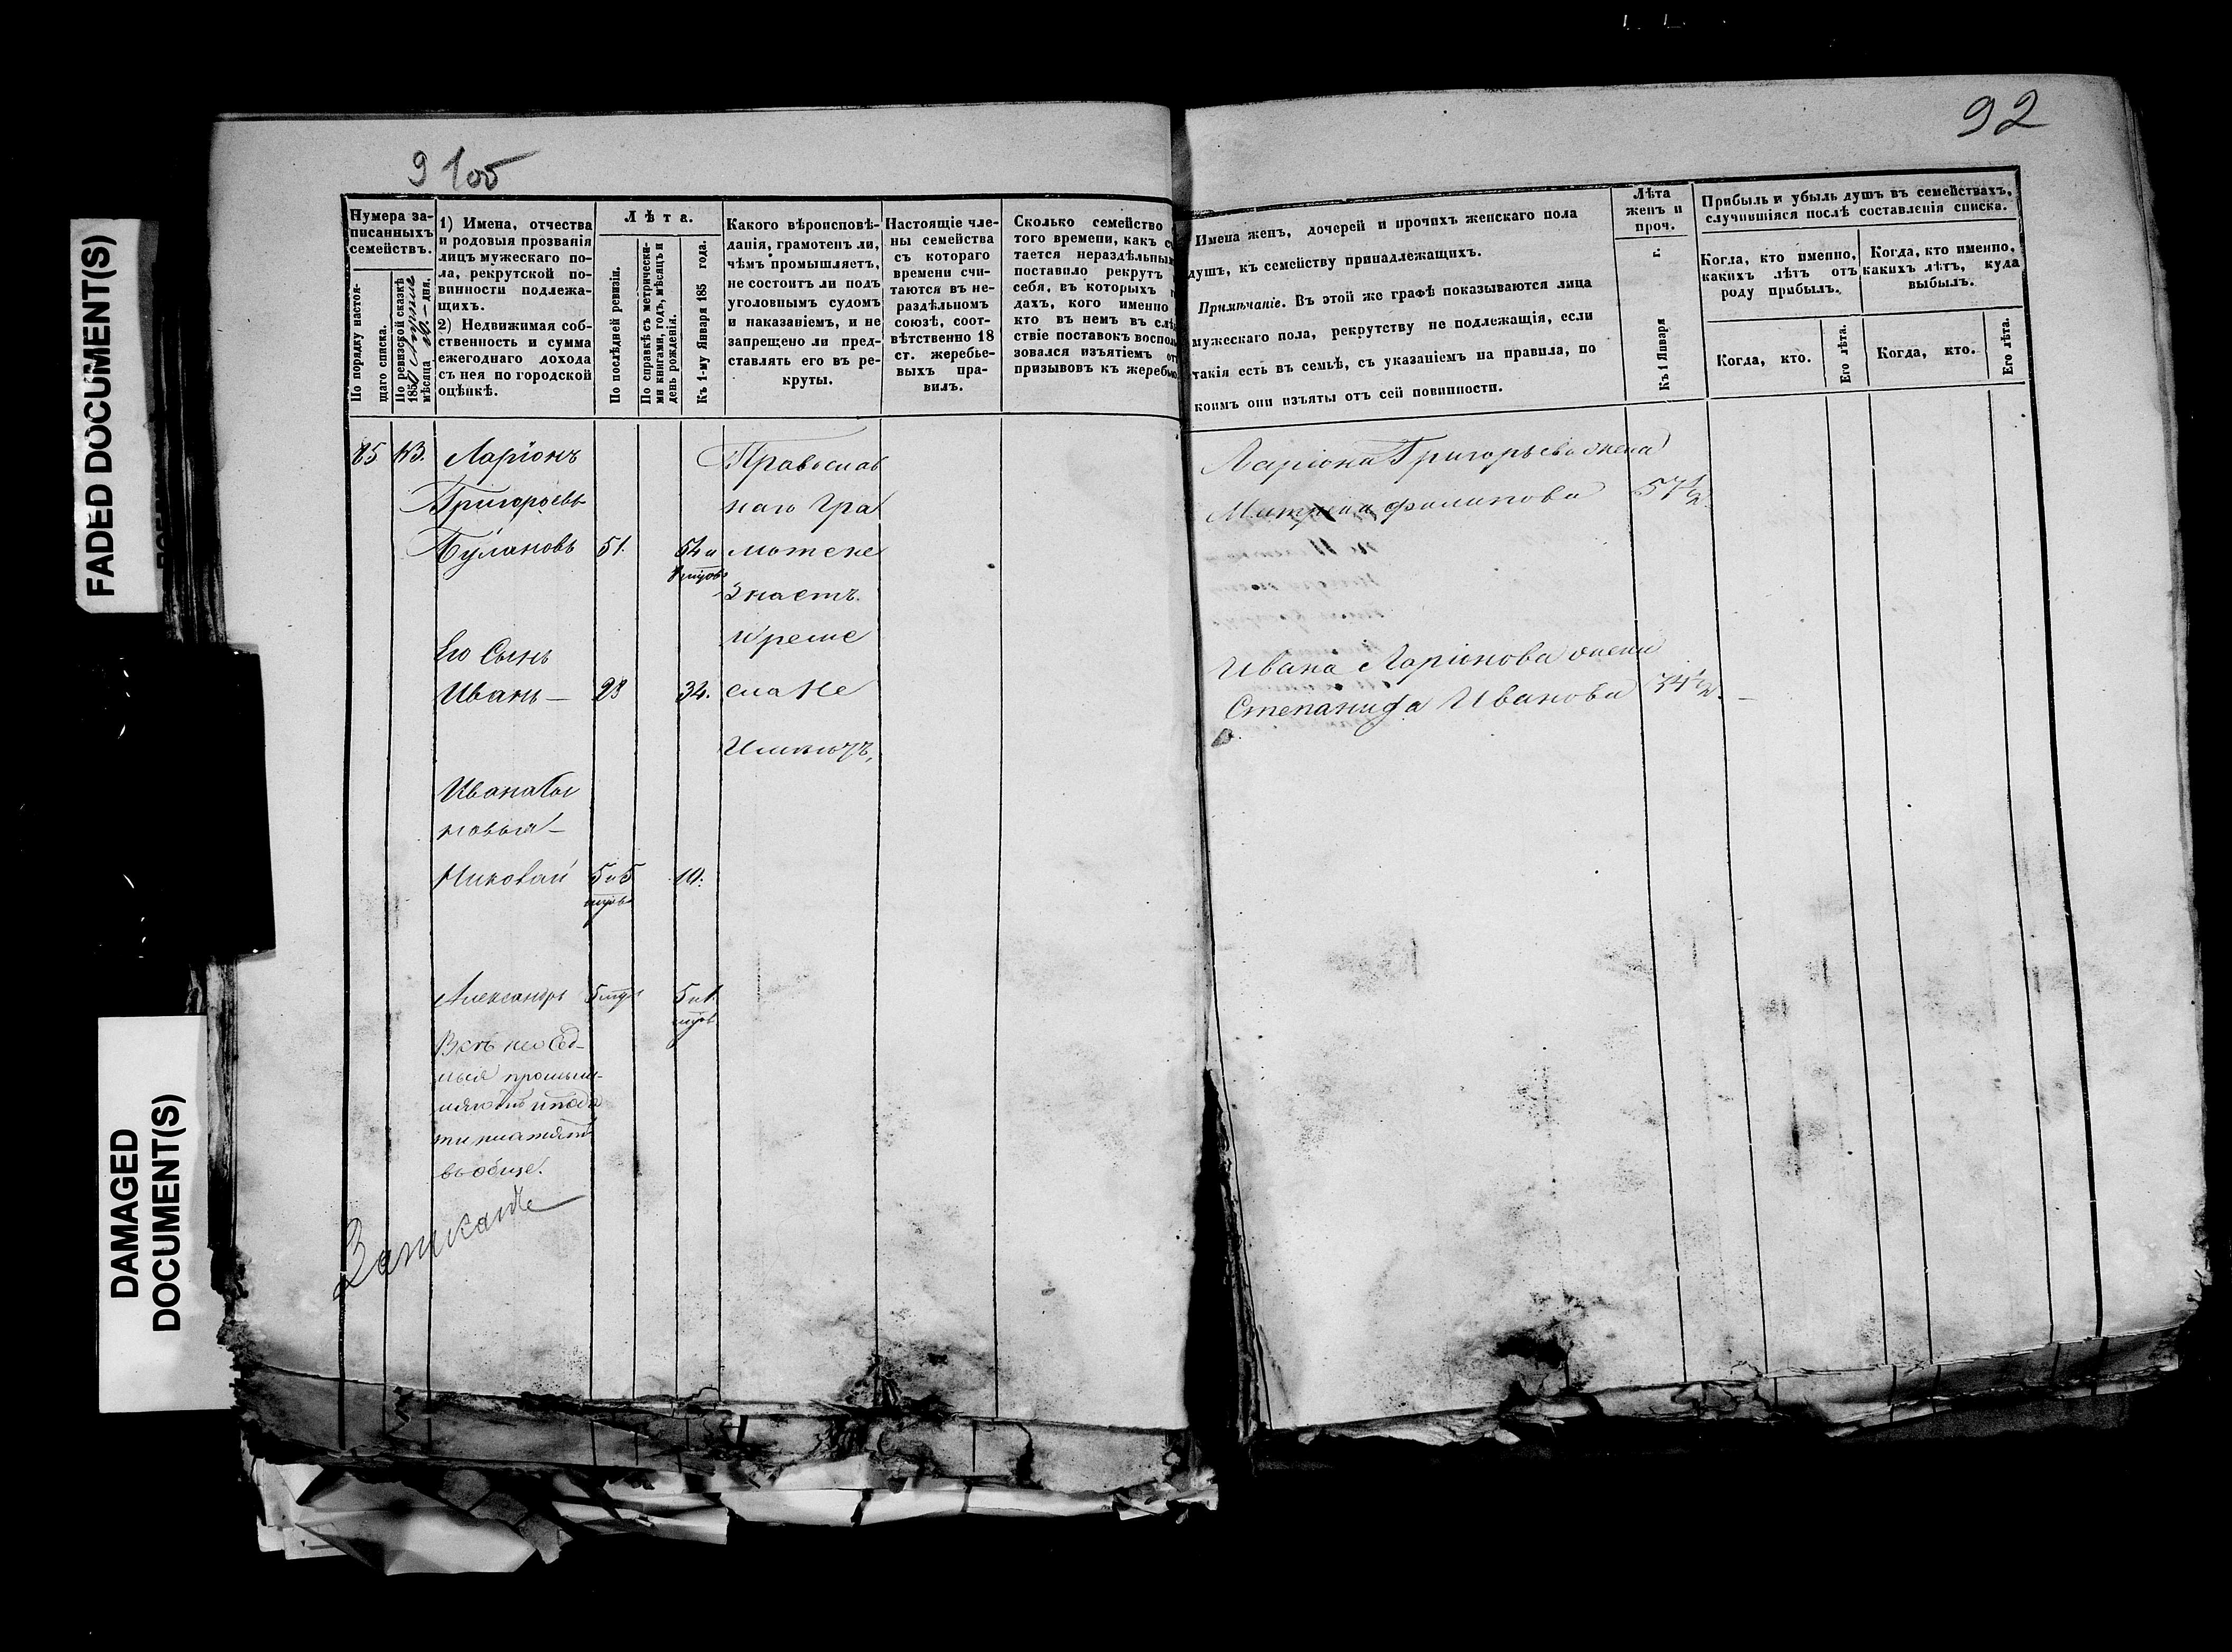 FADED DOCUMENT(S)
DAMAGED
DOCUMENT(S)
9 105
92
Нумера за-
писанныхъ
семействъ.
По порядку настоя-
щаго списка.
По ревизской сказкѣ
185
мѣсяца дня.
1) Имена, отчества
и родовыя прозванія
лицъ мужескаго по-
ла, рекрутской по-
винности подлежа-
щихъ.
2) Недвижимая соб-
ственность и сумма
ежегоднаго дохода
съ нея по городской
оцѣнкѣ.
Лѣта.
По послѣдней ревизіи.
По справкѣ съ метрически-
ми книгами, годъ, мѣсяцъ и
день рожденія.
Къ 1-му Января 185 года.
Какого вѣроисповѣ-
данія, грамотенъ ли,
чѣмъ промышляетъ,
не состоитъ ли подъ
уголовнымъ судомъ
и наказаніемъ, и не
запрещено ли пред-
ставлять его въ ре-
круты.
Настоящіе чле-
ны семейства
съ котораго
времени счи-
таются въ не-
раздѣльномъ
союзѣ, соот-
вѣтственно 18
ст. жеребье-
выхъ пра-
вилъ.
Сколько семейство
того времени, какъ
тается нераздѣльнымъ
поставило рекрутъ
себя, въ которыхъ
дахъ, кого именно
кто въ немъ въ
ствіе поставокъ
зовался изъятіемъ
призывовъ къ
Имена женъ, дочерей и прочихъ женскаго пола
душъ, къ семейству принадлежащихъ.
Примѣчаніе. Въ этой же графѣ показываются лица
мужескаго пола, рекрутству не подлежащія, если
такія есть въ семьѣ, съ указаніемъ на правила, по
коимъ они изъяты отъ сей повинности.
Лѣта
женъ и
проч.
Къ 1 Января г.
Прибыль и убыль душъ въ семействахъ,
случившіяся послѣ составленія списка.
Когда, кто именно,
какихъ лѣтъ отъ
роду прибылъ.
Когда, кто именно,
какихъ лѣтъ, куда
выбылъ.
Когда, кто.
Его лѣта.
Когда, кто.
Его лѣта.
85 Ларіонъ
Григорьевъ
Булановъ 51. 54 и
Православ
наго Гра
моте не
Знаетъ
Креме
сла Не
Имѣютъ,
Его Сынъ
Иванъ — 28 34.
Ивана Сы
новья —
Николай 5 и 5 10.
Александръ
вообще.
Ларіона Григорьева жена
Матрена Филипова 57 ½
Ивана Ларіонова жена
Степанида Иванова 34 ½. —